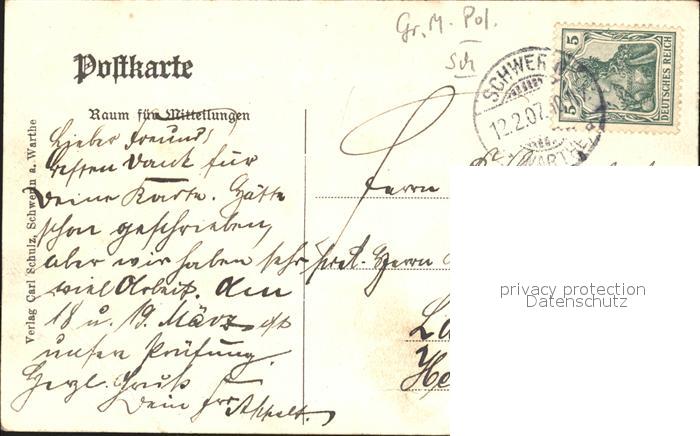 Gr. M. Pol.
Sch
Postkarte
5 5
DEUTSCHES REICH
SCHWERIN
12.2.07.
WARTHE
Raum für Mitteilungen
Lieber Freund!
besten Dank für
Deine Karte. Hätte
schon geschrieben,
aber wir haben sehr
viel Arbeit. Am
18 u. 19. März ist
unsere Prüfung.
Herzl. Gruß
Dein
Herrn
Herrn
La
He
Verlag Carl Schulz, Schwerin a. Warthe
privacy protection
Datenschutz